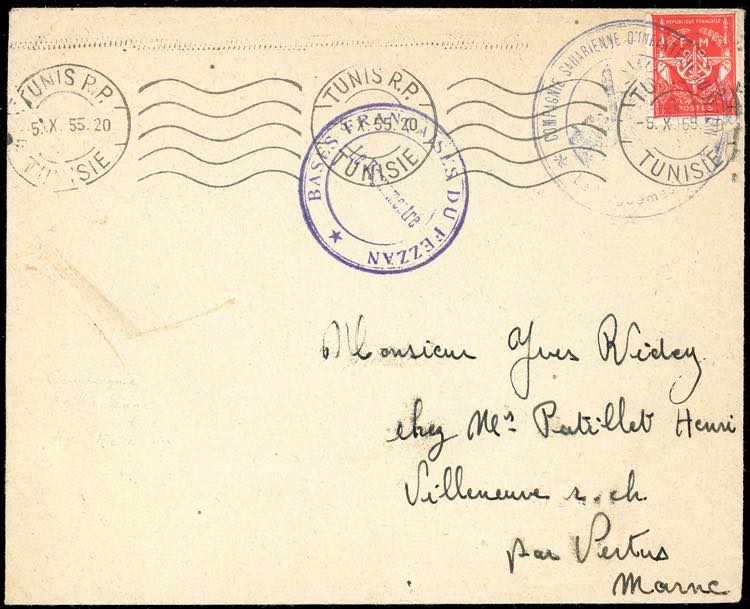 TUNIS R.P.
-5.X.55.20
TUNISIE
TUNIS R.P.
-5.X.55.20
TUNISIE
BASES FRANÇAISES DU FEZZAN
COMPAGNIE SAHARIENNE
REPUBLIQUE FRANÇAISE
F M
POSTES
-5.X.55
TUNISIE
Monsieur Yves
chez Mr Patillet Henri
Villeneuve r. ch.
par Vertus
Marne